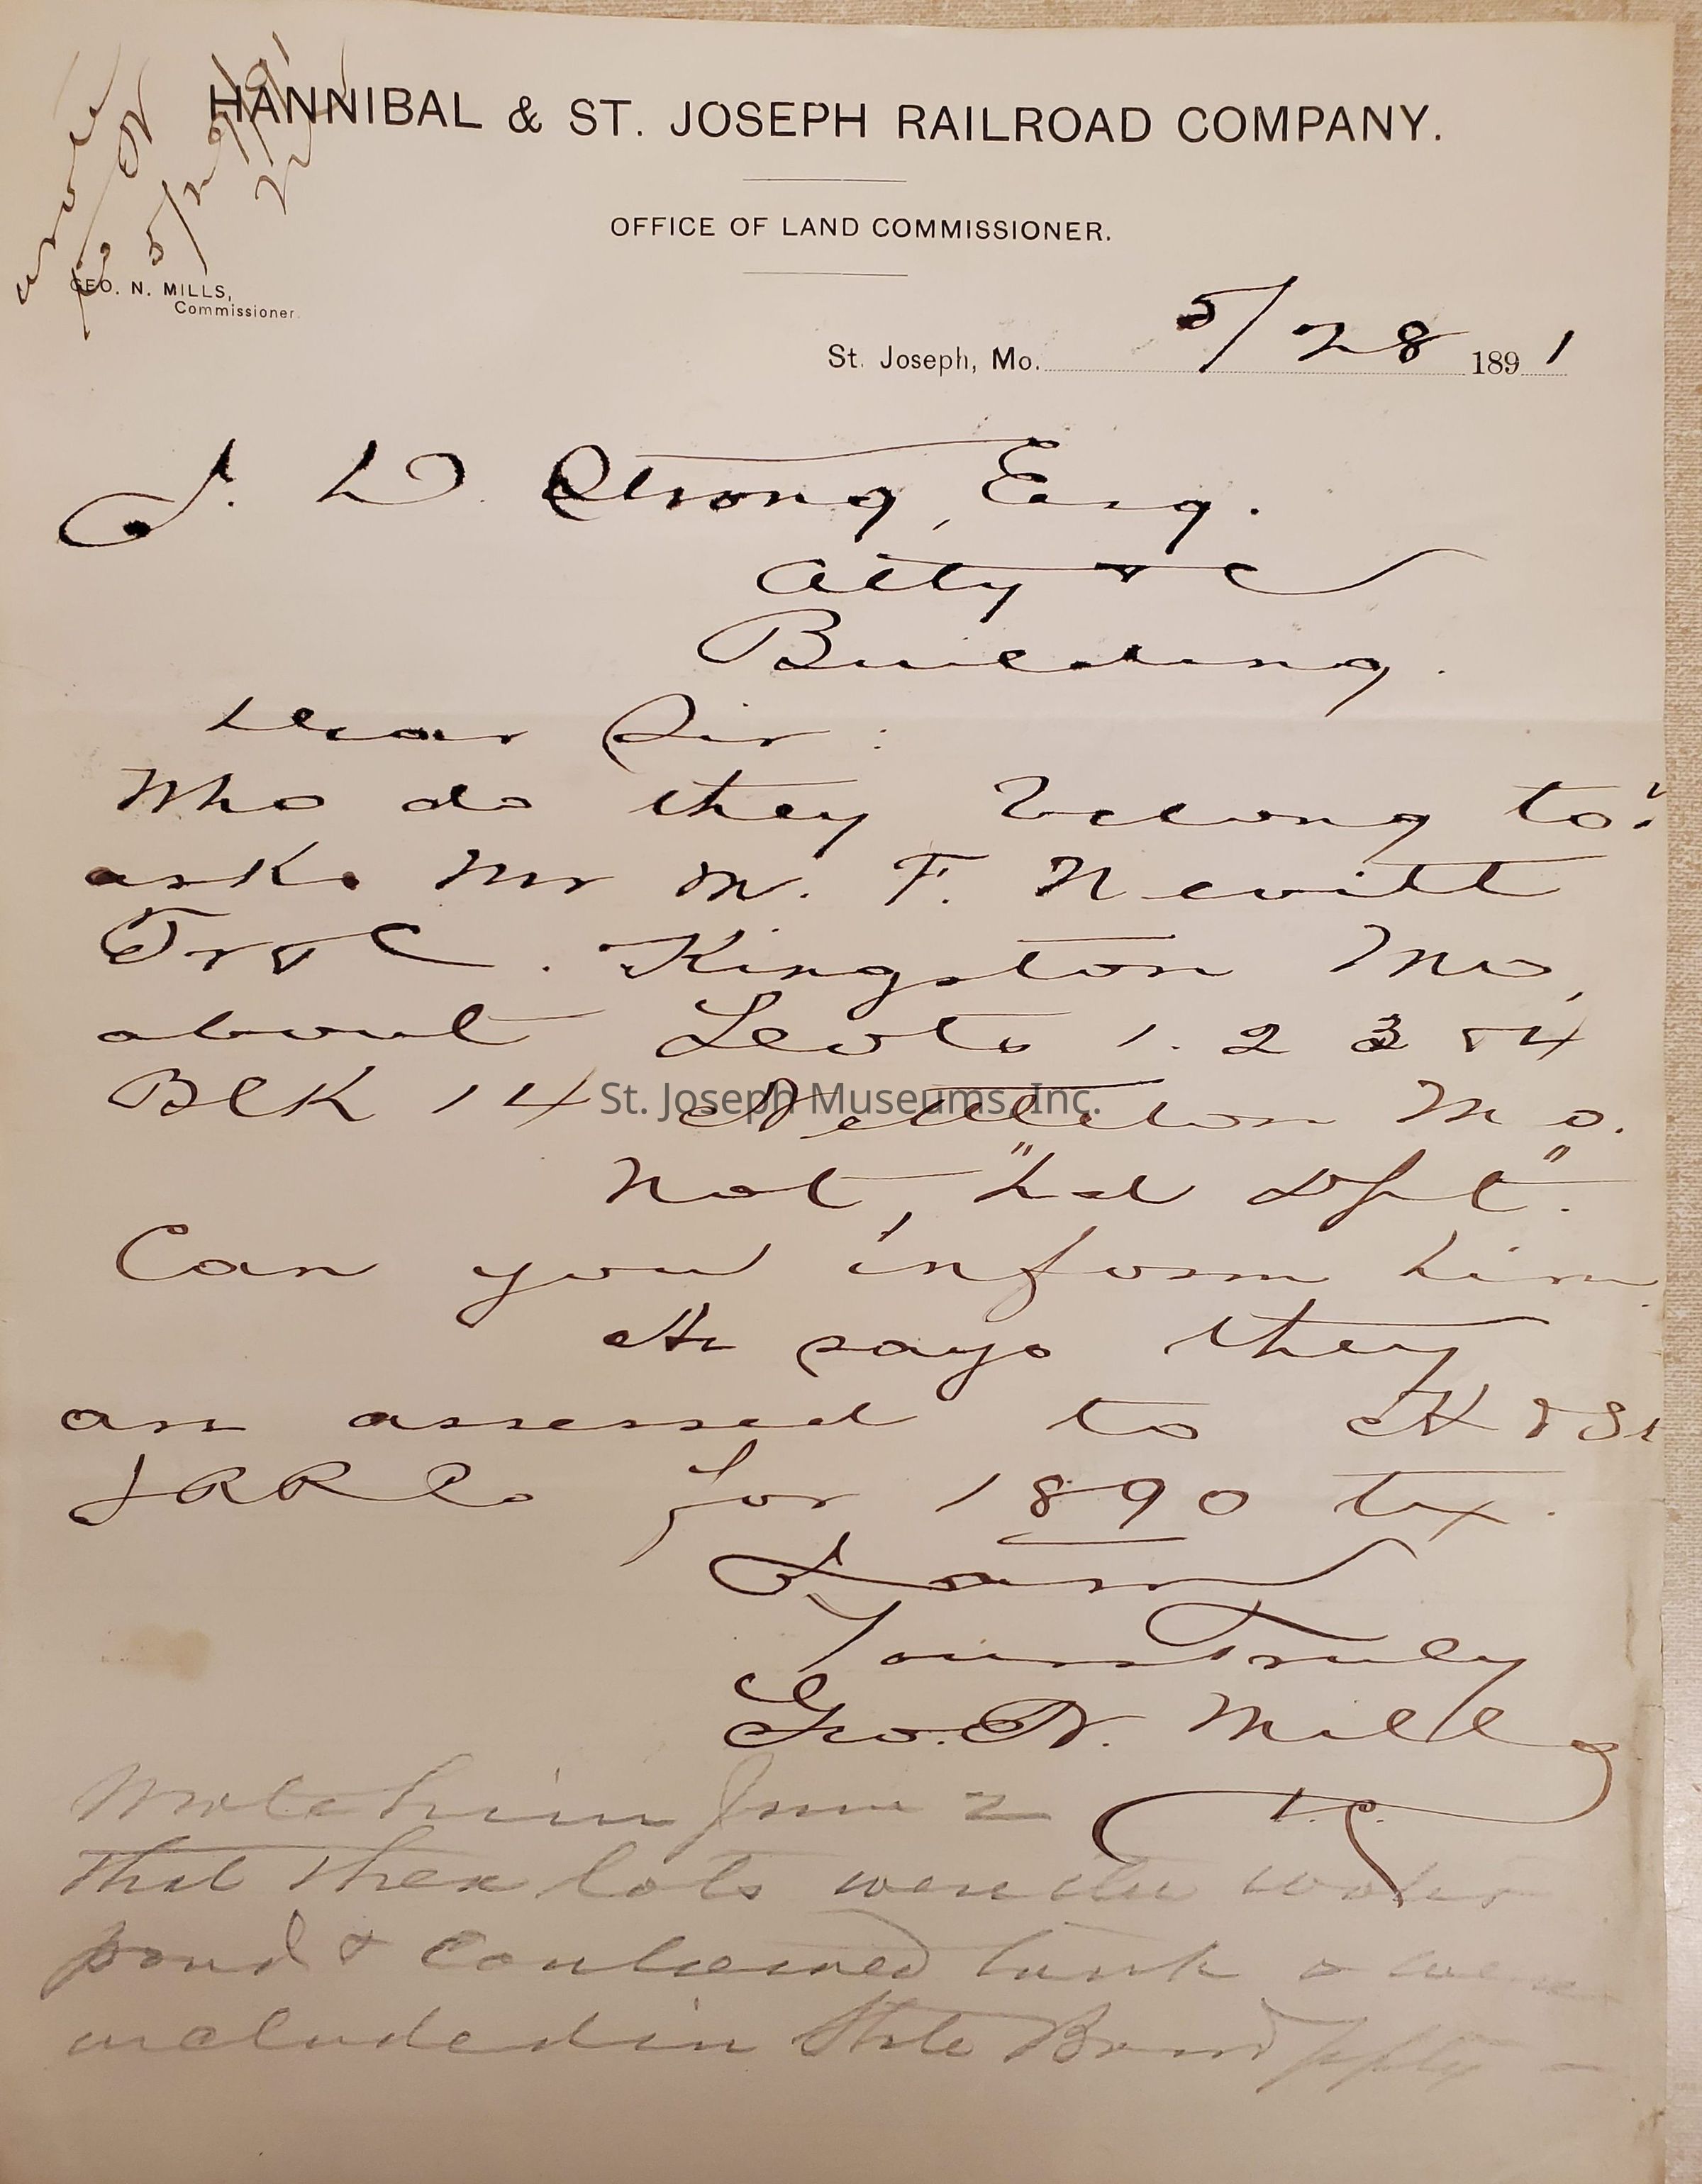 HANNIBAL & ST. JOSEPH RAILROAD COMPANY.
OFFICE OF LAND COMMISSIONER.
GEO. N. MILLS,
Commissioner.
St. Joseph, Mo. 5/28 1891
J. D. Strong, Esq.
Atty &c
Building.
Dear Sir:
Who do they belong to"
asks Mr M. F. Nevitt
Tr &c. Kingston Mo,
about Lots 1. 2 3 & 4
Blk 14 Nettleton Mo.
Not, "Ld Dpt".
Can you inform him.
He says they
are assessed to H & St
J R R Co for 1890 tax.
Yours Truly
Geo. N. Mills
L. C.
Wrote him June 2
that these lots were the water
pond & contained tank & were
included in State Board
St. Joseph Museums, Inc.